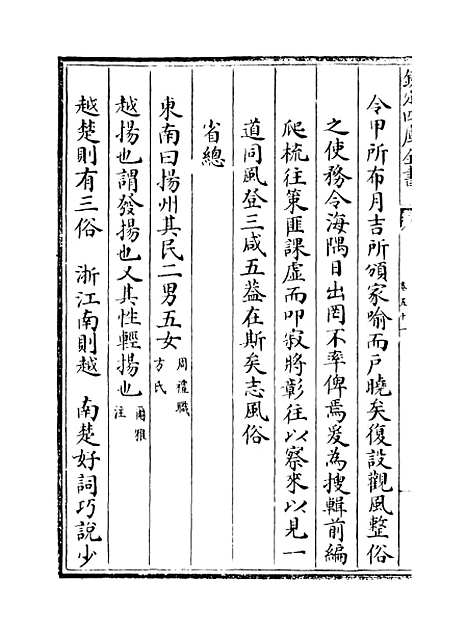 欽定四庫全書
令甲所布月吉所頒家喻而戸曉矣復設觀風整俗
之使務令海隅日出罔不率俾焉爰為搜輯前編
爬梳往策匪課虛而叩寂將彰往以察來以見一
道同風登三咸五葢在斯矣志風俗
省總
東南曰揚州其民二男五女周禮職方氏
越揚也謂發揚也又其性輕揚也爾雅注
越楚則有三俗 浙江南則越 南楚好詞巧說少